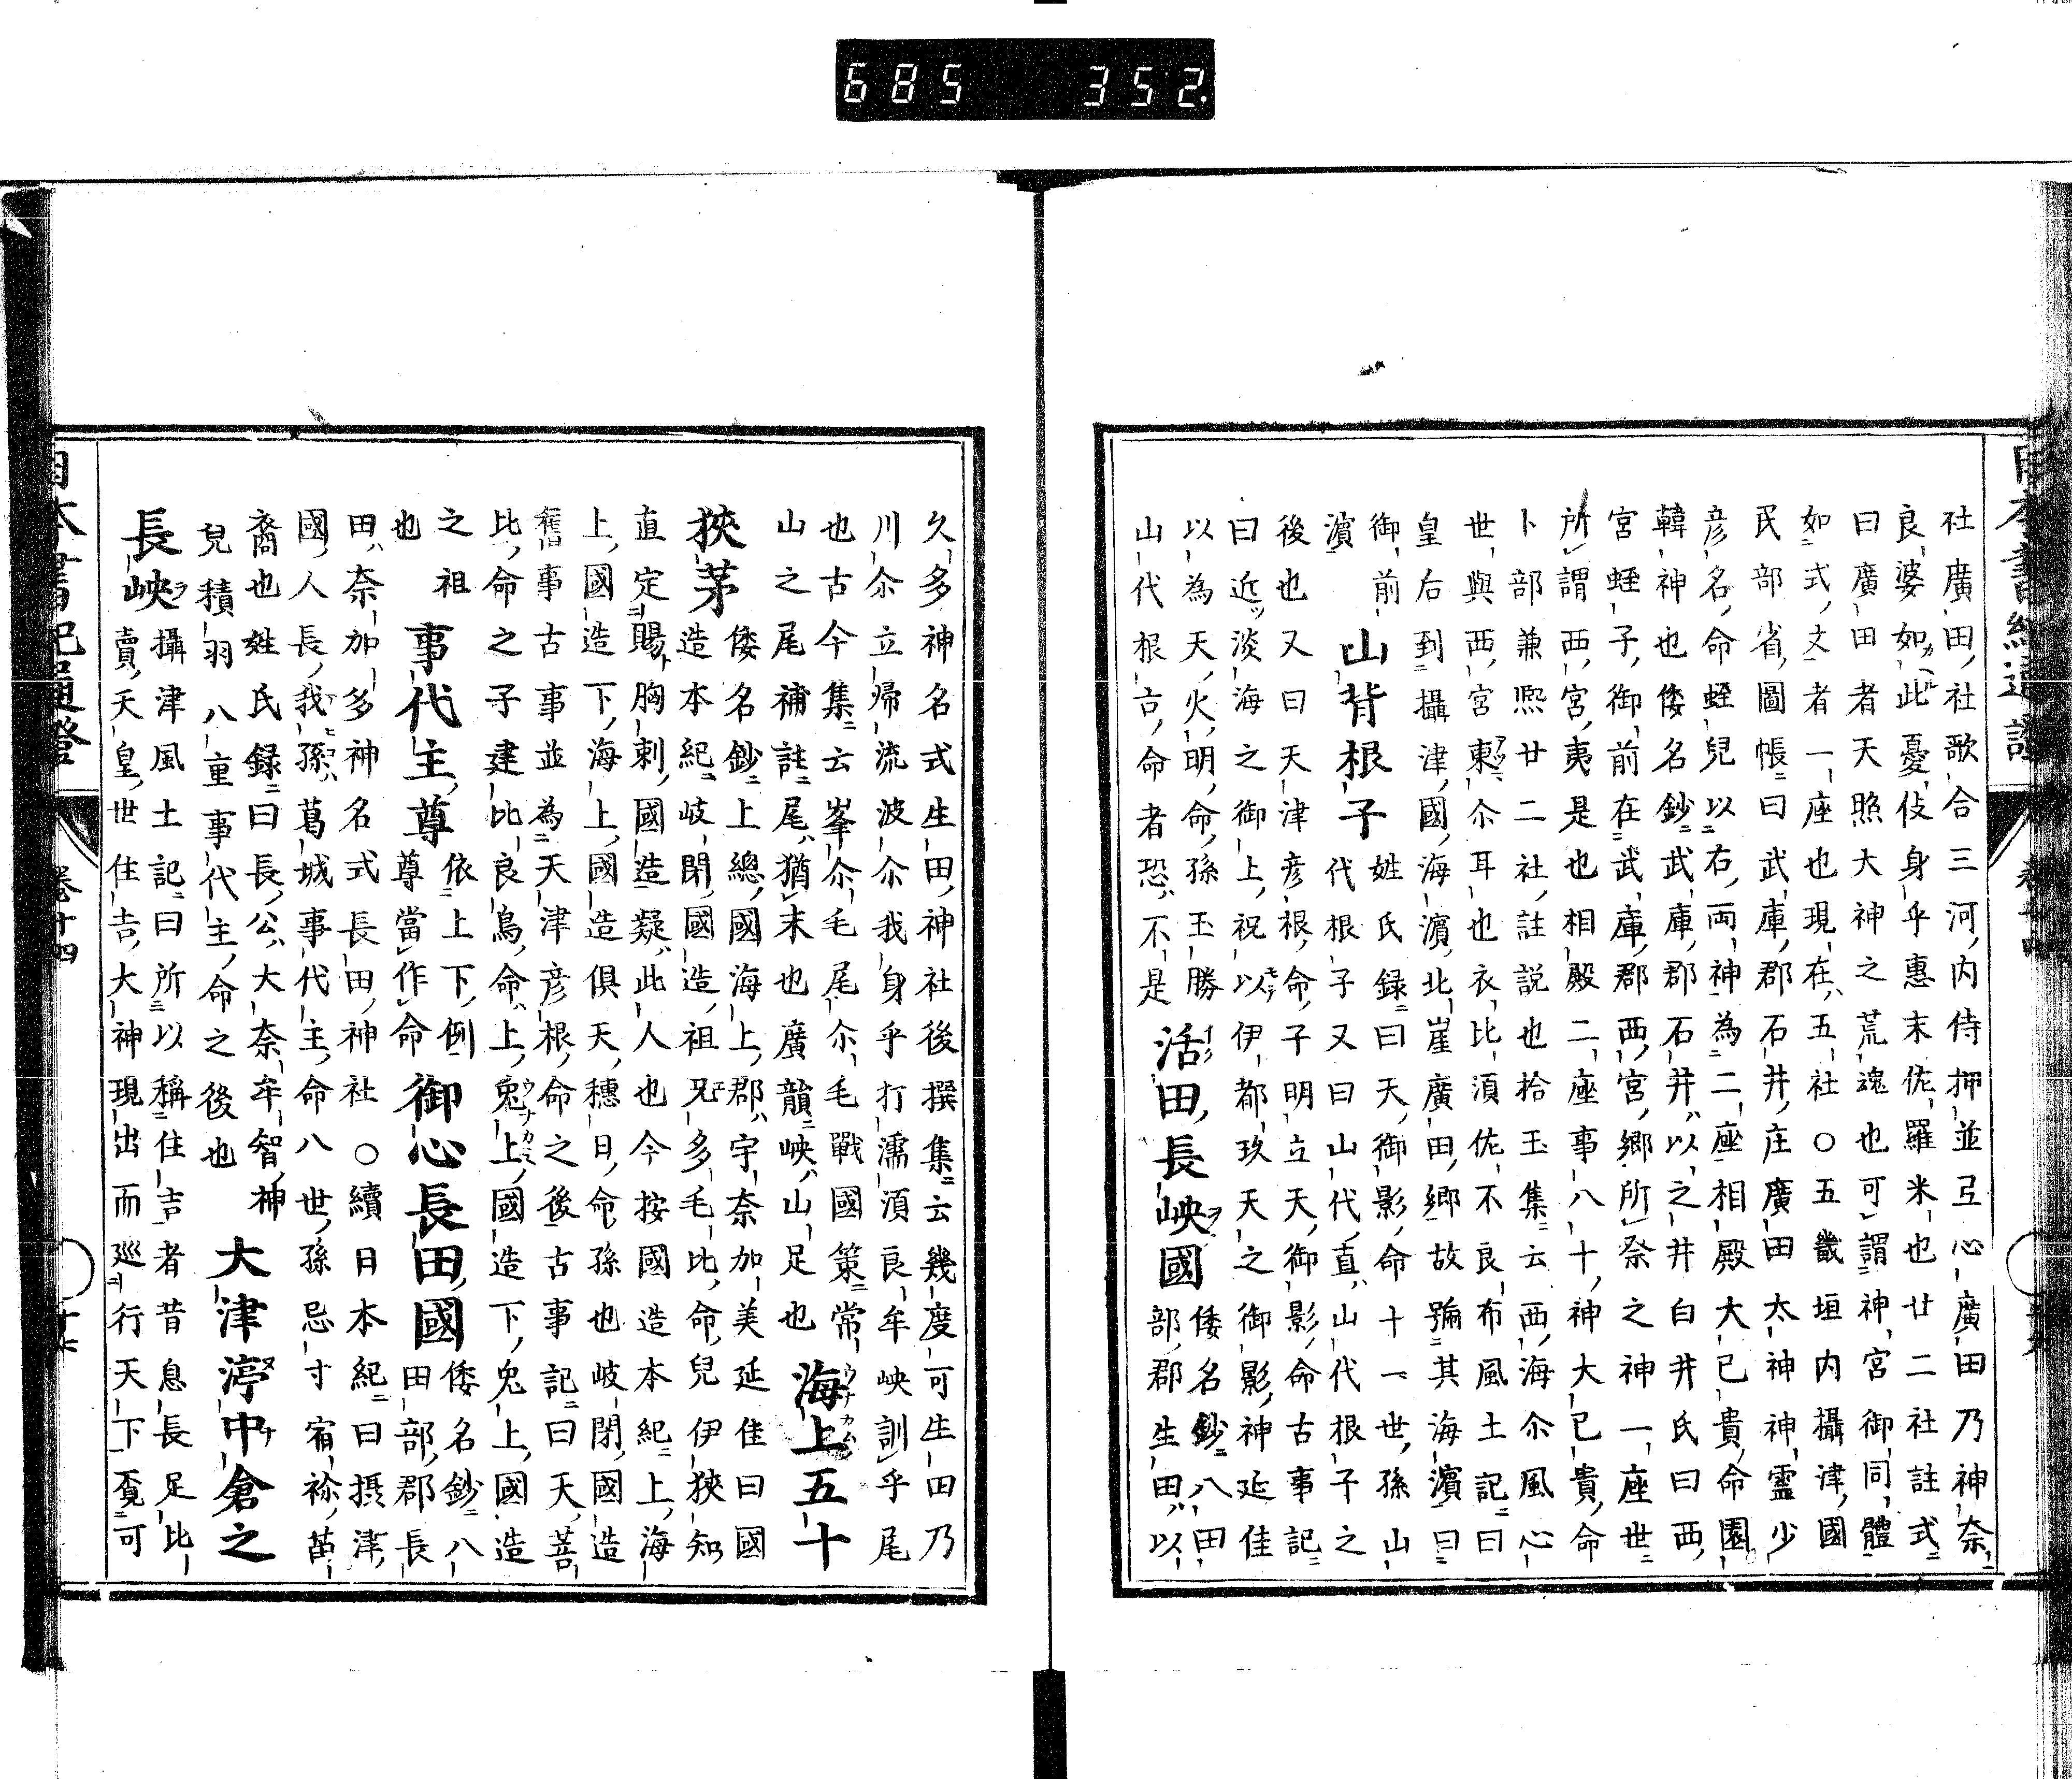 685 352
社廣田社歌合三河内侍押並弖心廣田乃神奈
良婆如此憂伎身乎惠末佐羅米也廿二社註式
曰廣田者天照大神之荒魂也可謂神宮御同體
如式文者一座也現在五社○五畿垣内攝津國
民部省圖帳曰武庫郡石井庄廣田太神神靈少
彦名命蛭兒以右両神為二座相殿大已貴命園
韓神也倭名鈔武庫郡石井以之井白井氏曰西
宮蛭子御前在武庫郡西宮郷所祭之神一座世
所謂西宮夷是也相殿二座事八十神大已貴命
卜部兼熈廿二社註説也拾玉集云西海尒風心
世與西宮東尒耳也衣比須佐不良布風土記曰
皇后到攝津國海濵北崖廣田郷故號其海濵曰
御前
濵
山背根子
姓氏録曰天御影命十一世孫山
代根子又曰山代直山代根子之
後也又曰天津彦根命子明立天御影命古事記
曰近淡海之御上祝以伊都玖天之御影神延佳
以為天火明命孫玉勝
山代根古命者恐不是
活田長峽國
倭名鈔八田
部郡生田以
久多神名式生田神社後撰集云幾度可生田乃
川尒立帰流波尒我身乎打濡須良牟峽訓乎尾
也古今集云峯尒毛尾尒毛戰國策常
山之尾補註尾猶末也廣韻峽山足也
海上五十
狹茅
倭名鈔上總國海上郡宇奈加美延佳曰國
造本紀岐閉國造祖兄多毛比命兒伊狹知
直定賜胸刺國造疑此人也今按國造本紀上海
上國造下海上國造倶天穗日命孫也岐閉國造
舊事古事並為天津彦根命之後古事記曰天菩
比命之子建比良鳥命上兔上國造下兔上國造
之祖
也
事代主尊
依上下例
尊當作命
御心長田國
倭名鈔八
田部郡長
田奈加多神名式長田神社○續日本紀曰摂津
國人長我孫葛城事代主命八世孫忌寸宿祢苗
裔也姓氏録曰長公大奈牟智神
兒積羽八重事代主命之後也
大津渟中倉之
長峽
攝津風土記曰所以稱住吉者昔息長足比
賣天皇世住吉大神現出而巡行天下覔可
日本書紀通證
卷十四